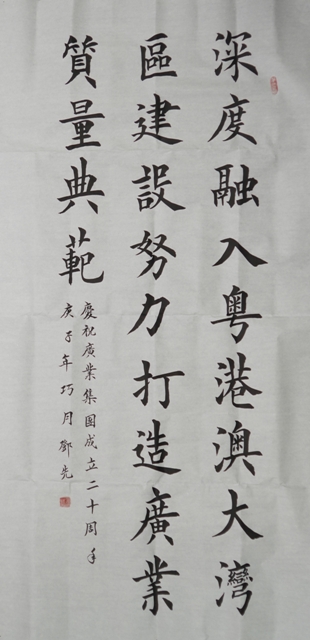 深度融入粤港澳大灣
區建設努力打造廣業
質量典範
慶祝廣業集團成立二十周年
庚子年巧月鄧先